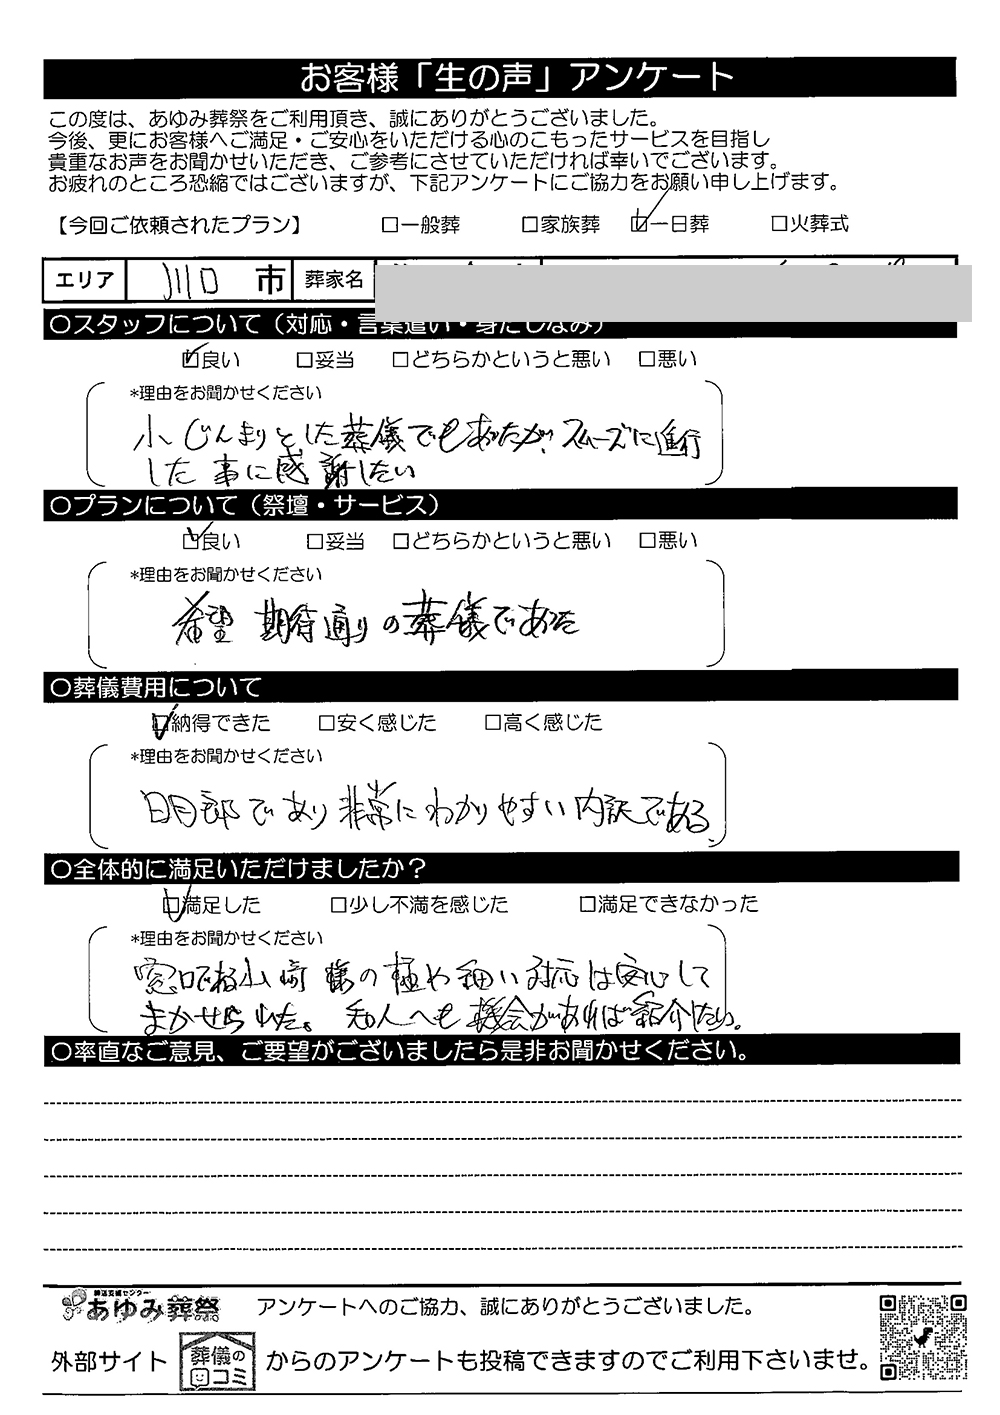 お客様「生の声」アンケート
この度は、あゆみ葬祭をご利用頂き、誠にありがとうございました。
今後、更にお客様へご満足・ご安心をいただける心のこもったサービスを目指し
貴重なお声をお聞かせいただき、ご参考にさせていただければ幸いでございます。
お疲れのところ恐縮ではございますが、下記アンケートにご協力をお願い申し上げます。
【今回ご依頼されたプラン】 □一般葬 □家族葬 ☑一日葬 □火葬式
エリア 川口 市 葬家名
○スタッフについて（対応・言葉遣い・身だしなみ）
☑良い □妥当 □どちらかというと悪い □悪い
*理由をお聞かせください
小じんまりとした葬儀でもあったが、スムーズに進行
した事に感謝したい
○プランについて（祭壇・サービス）
☑良い □妥当 □どちらかというと悪い □悪い
*理由をお聞かせください
希望 期待通りの葬儀であった
○葬儀費用について
☑納得できた □安く感じた □高く感じた
*理由をお聞かせください
明郎であり非常にわかりやすい内訳である。
○全体的に満足いただけましたか？
☑満足した □少し不満を感じた □満足できなかった
*理由をお聞かせください
窓口である山崎様の極や細い対応は安心して
まかせられた。知人へも機会があれば紹介したい。
○率直なご意見、ご要望がございましたら是非お聞かせください。
葬送支援センター
あゆみ葬祭 アンケートへのご協力、誠にありがとうございました。
外部サイト 葬儀の口コミ からのアンケートも投稿できますのでご利用下さいませ。